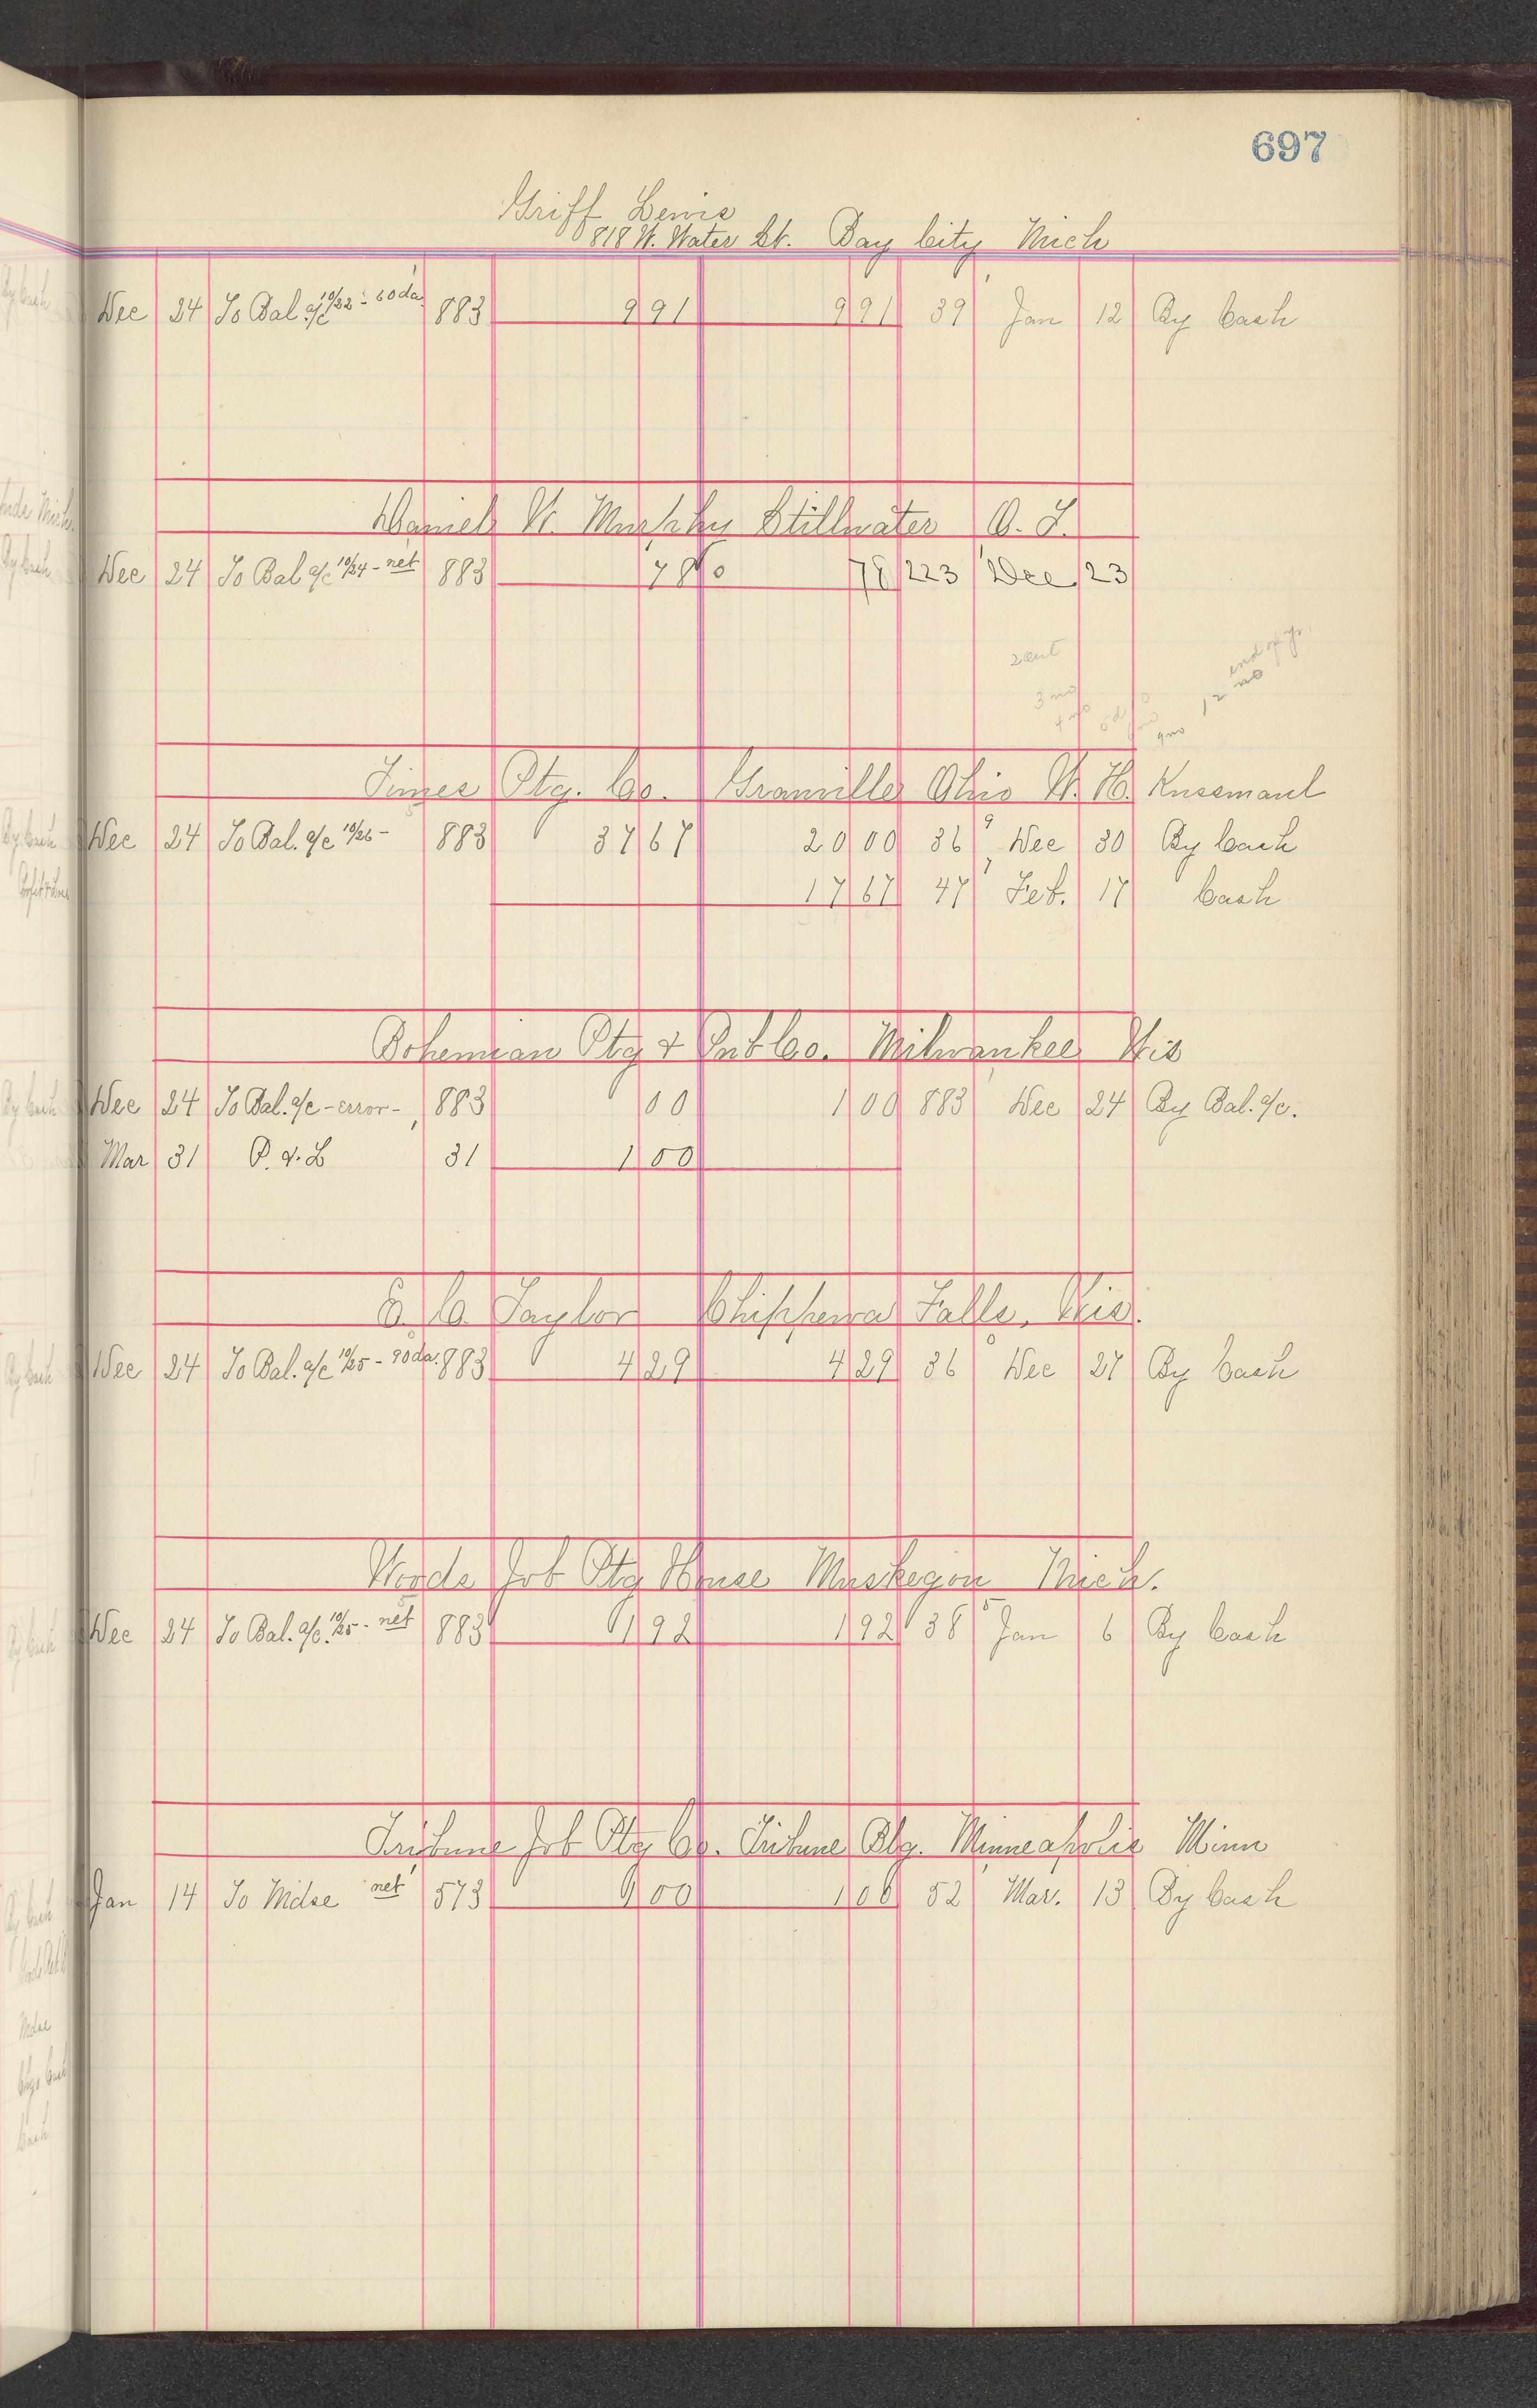 697
Griff Lewis
818 N. Water St. Bay City Mich
Dec 24 To Bal a/c 10/22 - 60 da. 883 9 91 9 91 39 Jan 12 By Cash
Daniel W. Murphy Stillwater O. T.
Dec 24 To Bal a/c 10/24 - net 883 78 78 223 Dec 23
2 cut
end of yr.
3 mo
12 mo
4 mo
9 mo
Times Ptg. Co. Granville Ohio W. H. Kussmaul
Dec 24 To Bal. a/c 10/26 - 883 37 67 20 00 36 Dec 30 By Cash
17 67 47 Feb. 17 Cash
Bohemian Ptg & Pub Co. Milwaukee Wis
Dec 24 To Bal. a/c - error - 883 00 1 00 883 Dec 24 By Bal. a/c.
Mar 31 P. & L 31 1 00
E. C. Taylor Chippewa Falls, Wis.
Dec 24 To Bal. a/c 10/25 - 90 da. 883 4 29 4 29 36 Dec 27 By Cash
Woods Job Ptg House Muskegon Mich.
Dec 24 To Bal. a/c. 10/25 - net 883 1 92 1 92 38 Jan 6 By Cash
Tribune Job Ptg Co. Tribune Blg. Minneapolis Minn
Jan 14 To Mdse net 573 1 00 1 00 52 Mar. 13 By Cash